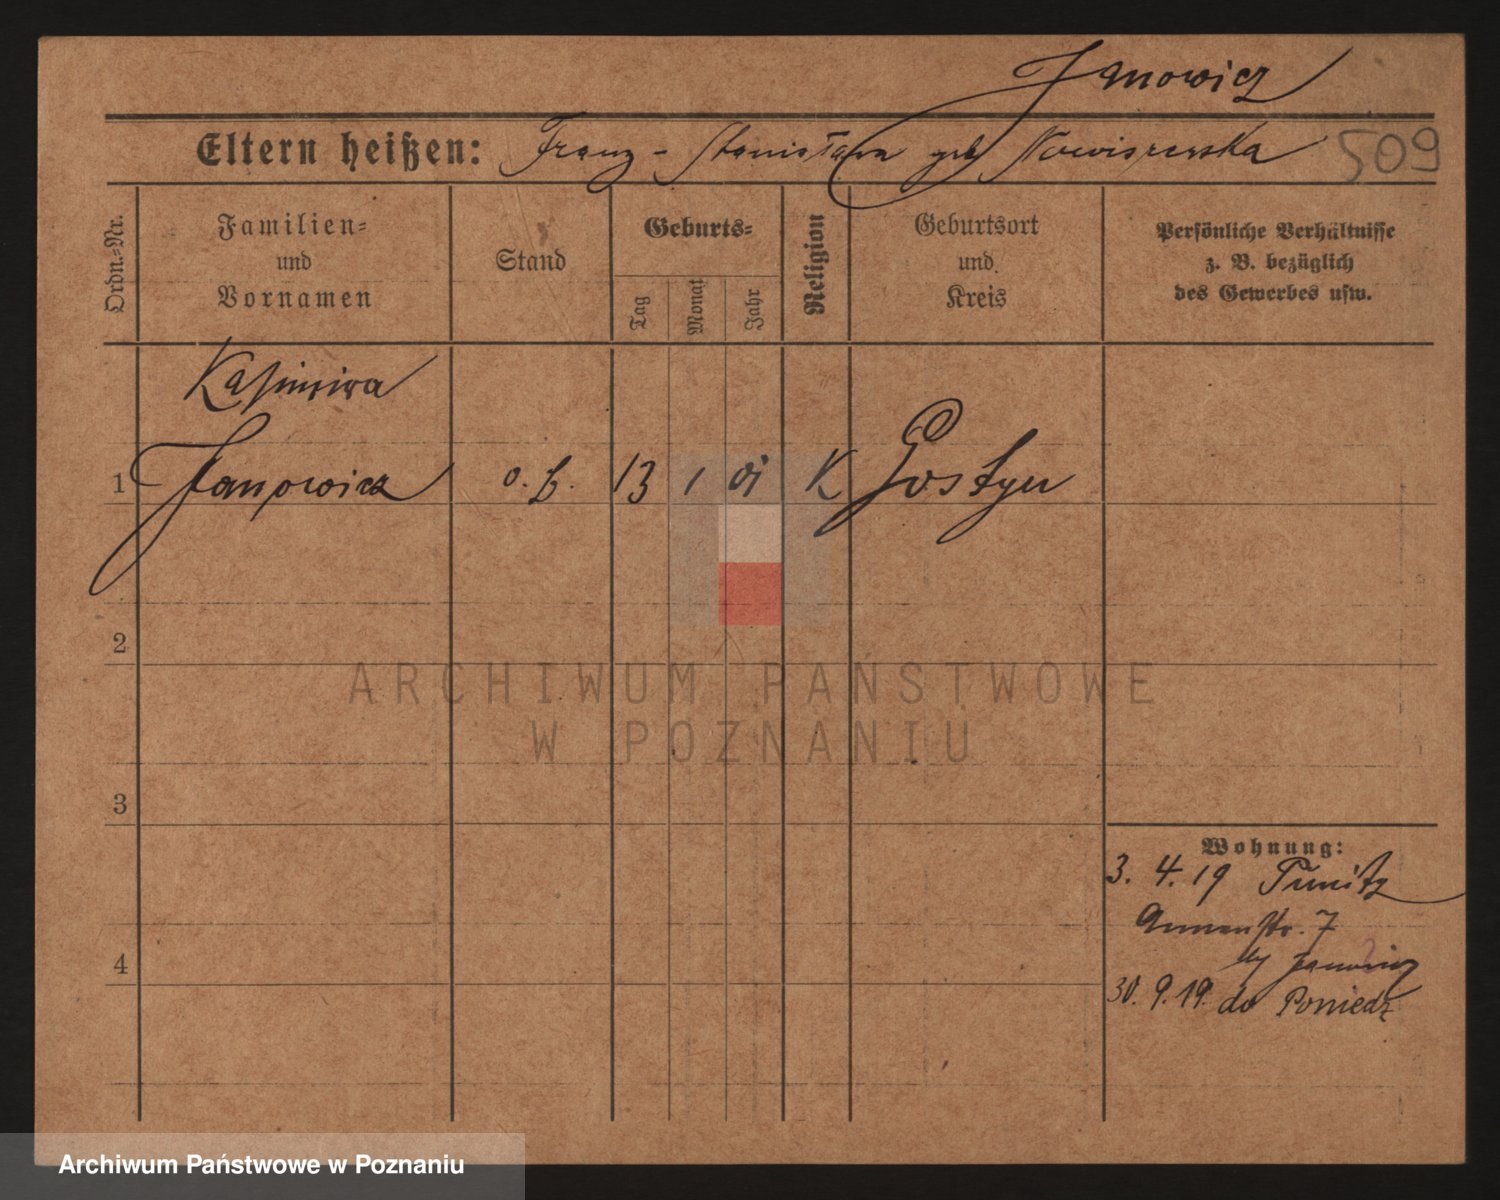 Janowicz
Eltern heißen: Franz - Stanisława geb Nowiszewska 509
Ordn.-Nr.
Familien-
und
Vornamen
Stand
Geburts-
Tag
Monat
Jahr
Religion
Geburtsort
und
Kreis
Persönliche Verhältnisse
z. B. bezüglich
des Gewerbes usw.
Kasimira
1 Janowicz o. B. 13 1 01 K Gostyn
2
ARCHIWUM PAŃSTWOWE
W POZNANIU
3
Wohnung:
3. 4. 19 Punitz
Annenstr. 7
by Janowicz
4
30. 9. 19. do Poniedz
Archiwum Państwowe w Poznaniu